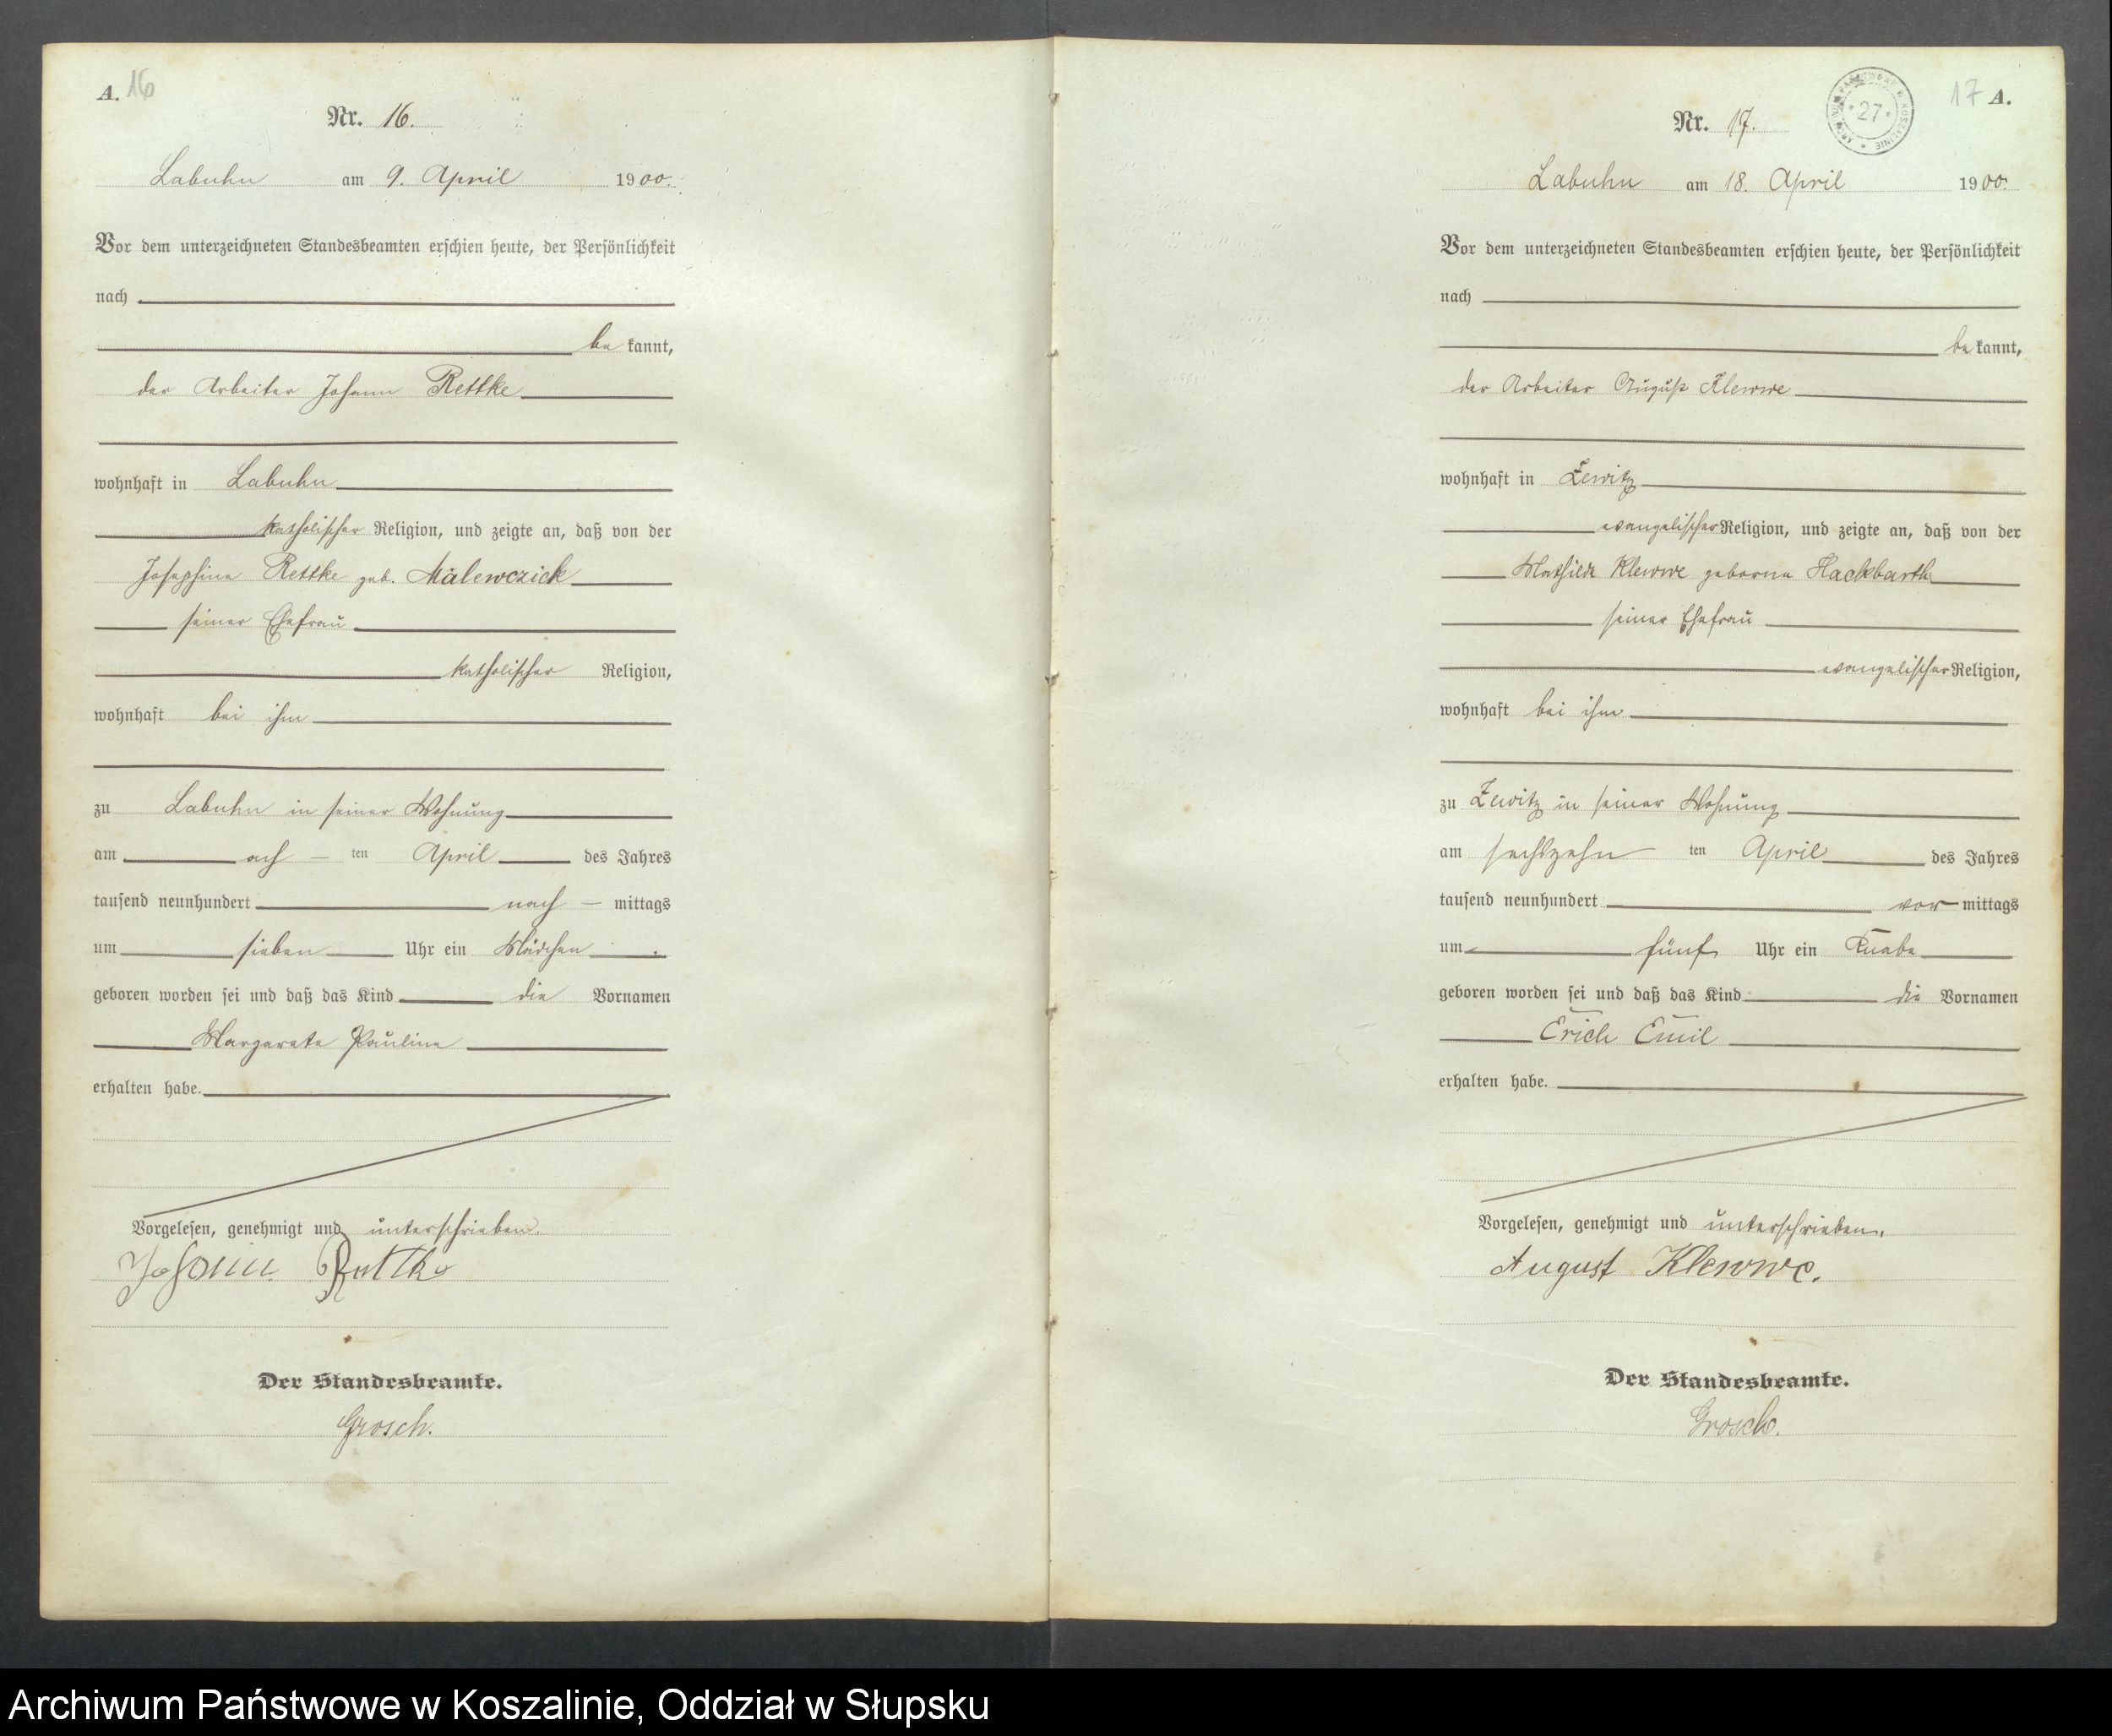 A. 16
Nr. 16.
Labuhn am 9. April 1900.
Vor dem unterzeichneten Standesbeamten erschien heute, der Persönlichkeit
nach
be kannt,
der Arbeiter Johann Rettke
wohnhaft in Labuhn
katholischer Religion, und zeigte an, daß von der
Josephine Rettke geb. Malewczick
seiner Ehefrau
katholischer Religion,
wohnhaft bei ihm
zu Labuhn in seiner Wohnung
am ach ten April des Jahres
tausend neunhundert nach mittags
um sieben Uhr ein Mädchen
geboren worden sei und daß das Kind die Vornamen
Margarete Pauline
erhalten habe.
Vorgelesen, genehmigt und unterschrieben.
Johann Rettke
Der Standesbeamte.
Grosch.
17 A.
ARCHIWUM PAŃSTWOWE W KOSZALINIE * 27 *
Nr. 17.
Labuhn am 18. April 1900.
Vor dem unterzeichneten Standesbeamten erschien heute, der Persönlichkeit
nach
be kannt,
der Arbeiter August Klewwe
wohnhaft in Zewitz
evangelischer Religion, und zeigte an, daß von der
Mathilde Klewwe geborene Hackbarth
seiner Ehefrau
evangelischer Religion,
wohnhaft bei ihm
zu Zewitz in seiner Wohnung
am sechszehn ten April des Jahres
tausend neunhundert vor mittags
um fünf Uhr ein Knabe
geboren worden sei und daß das Kind die Vornamen
Erich Emil
erhalten habe.
Vorgelesen, genehmigt und unterschrieben.
August Klewwe.
Der Standesbeamte.
Grosch.
Archiwum Państwowe w Koszalinie, Oddział w Słupsku